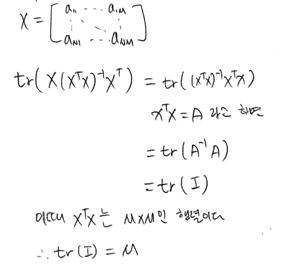 X = [ a₁₁ ⋯ a₁M
⋮ ⋱ ⋮
a_N1 ⋯ a_NM ]
tr(X(XᵀX)⁻¹Xᵀ) = tr((XᵀX)⁻¹XᵀX)
XᵀX = A 라고 하면
= tr(A⁻¹A)
= tr(I)
이때 XᵀX는 M×M인 행렬이다
∴ tr(I) = M